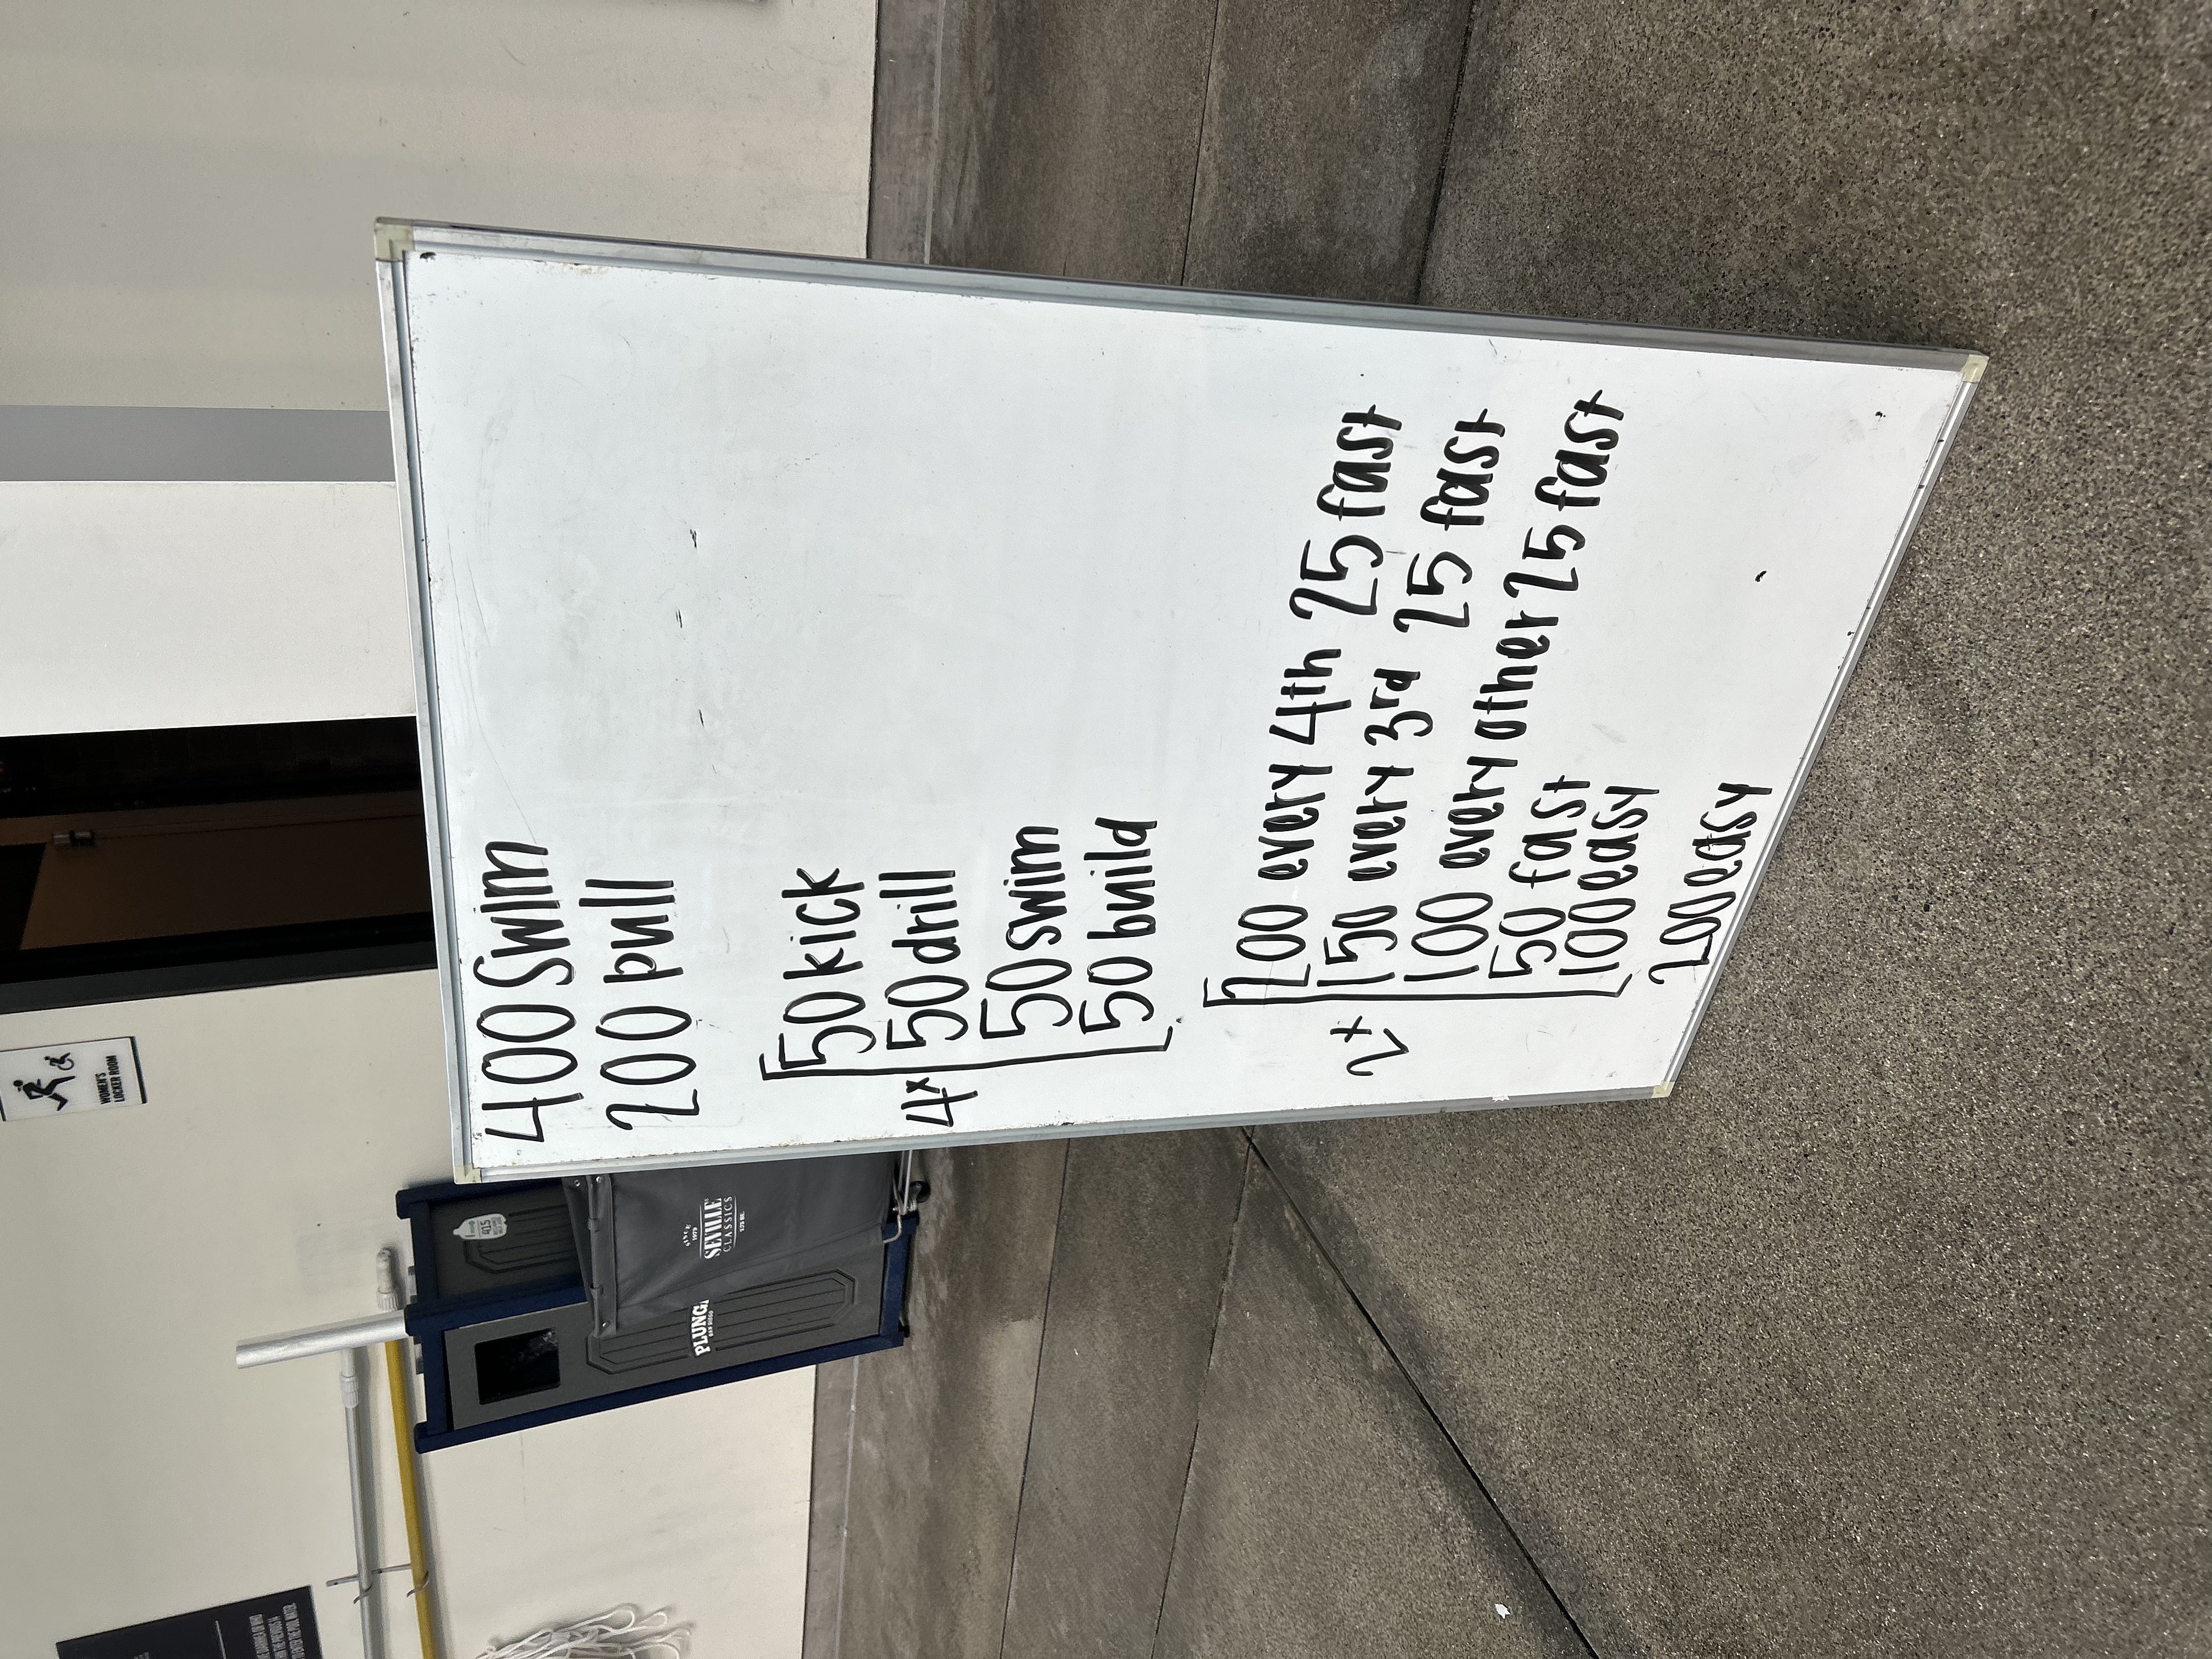 400 Swim
200 pull
4x
50 kick
50 drill
50 swim
50 build
2x
200 every 4th 25 fast
150 every 3rd 25 fast
100 every other 25 fast
50 fast
100 easy
200 easy
WOMEN'S
LOCKER ROOM
SINCE
1979
SEVILLE
CLASSICS
PLUNGE
SAN DIEGO
415